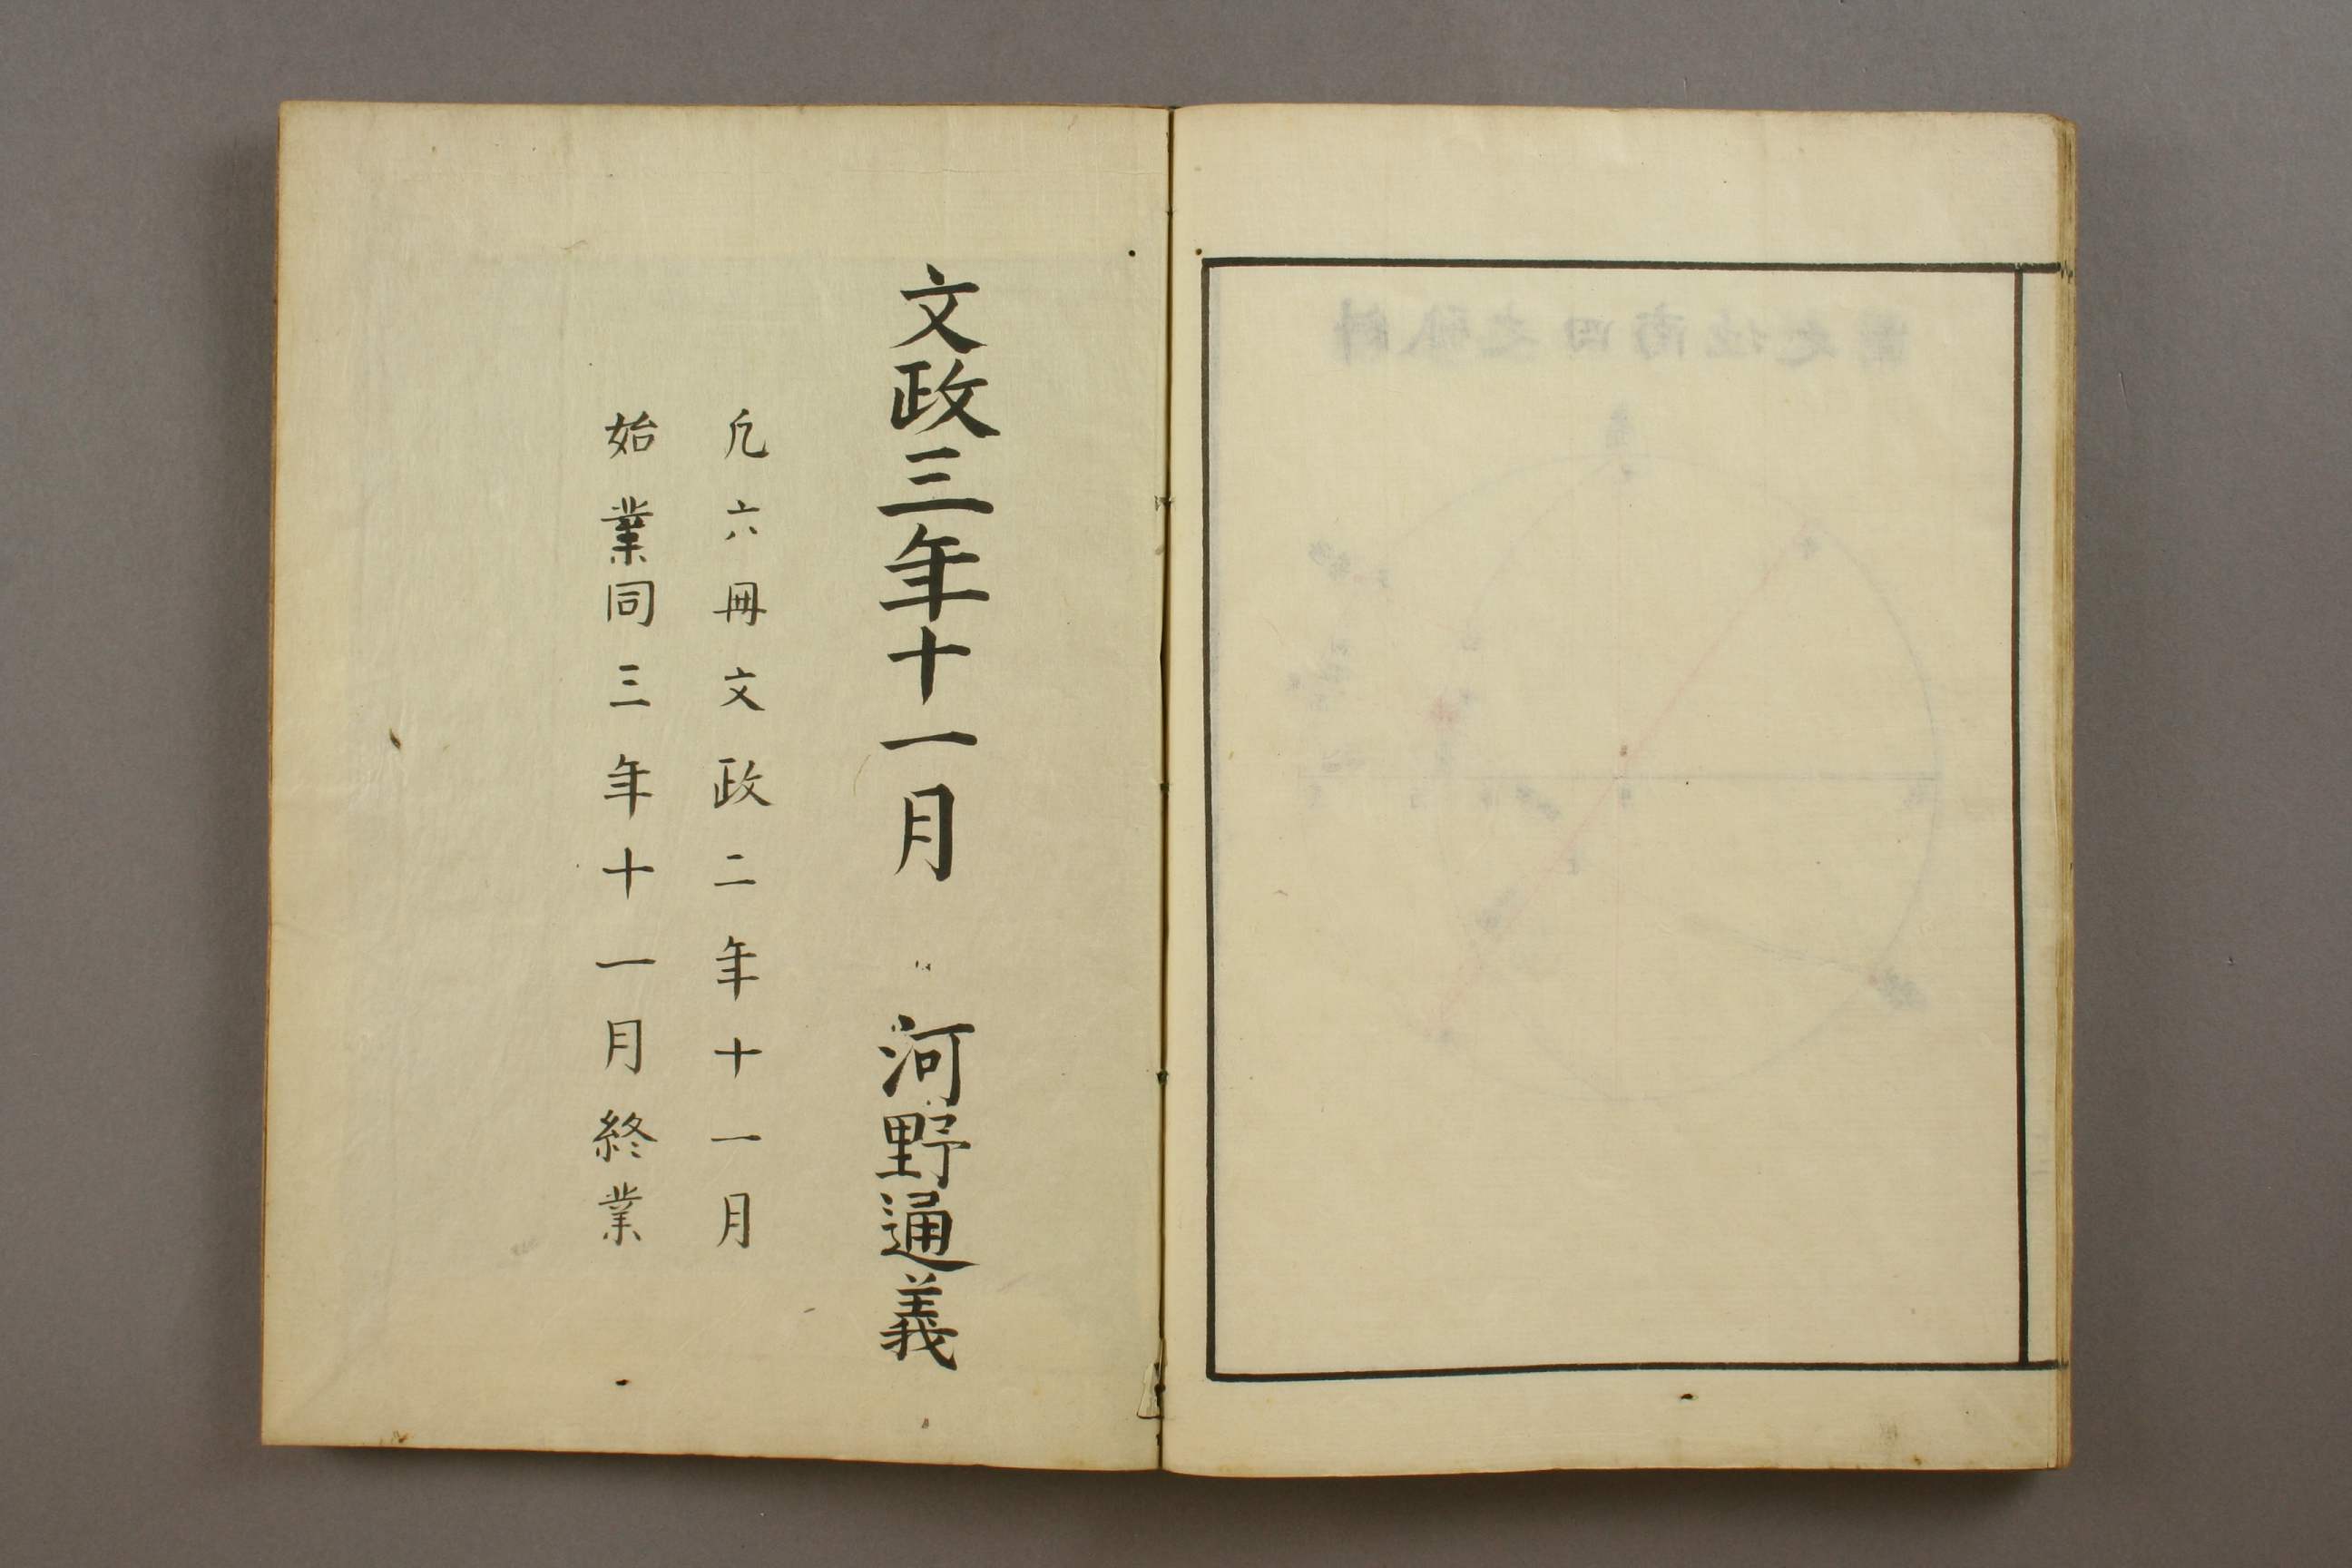 文政三年十一月 河野通義
凡六冊文政二年十一月
始業同三年十一月終業